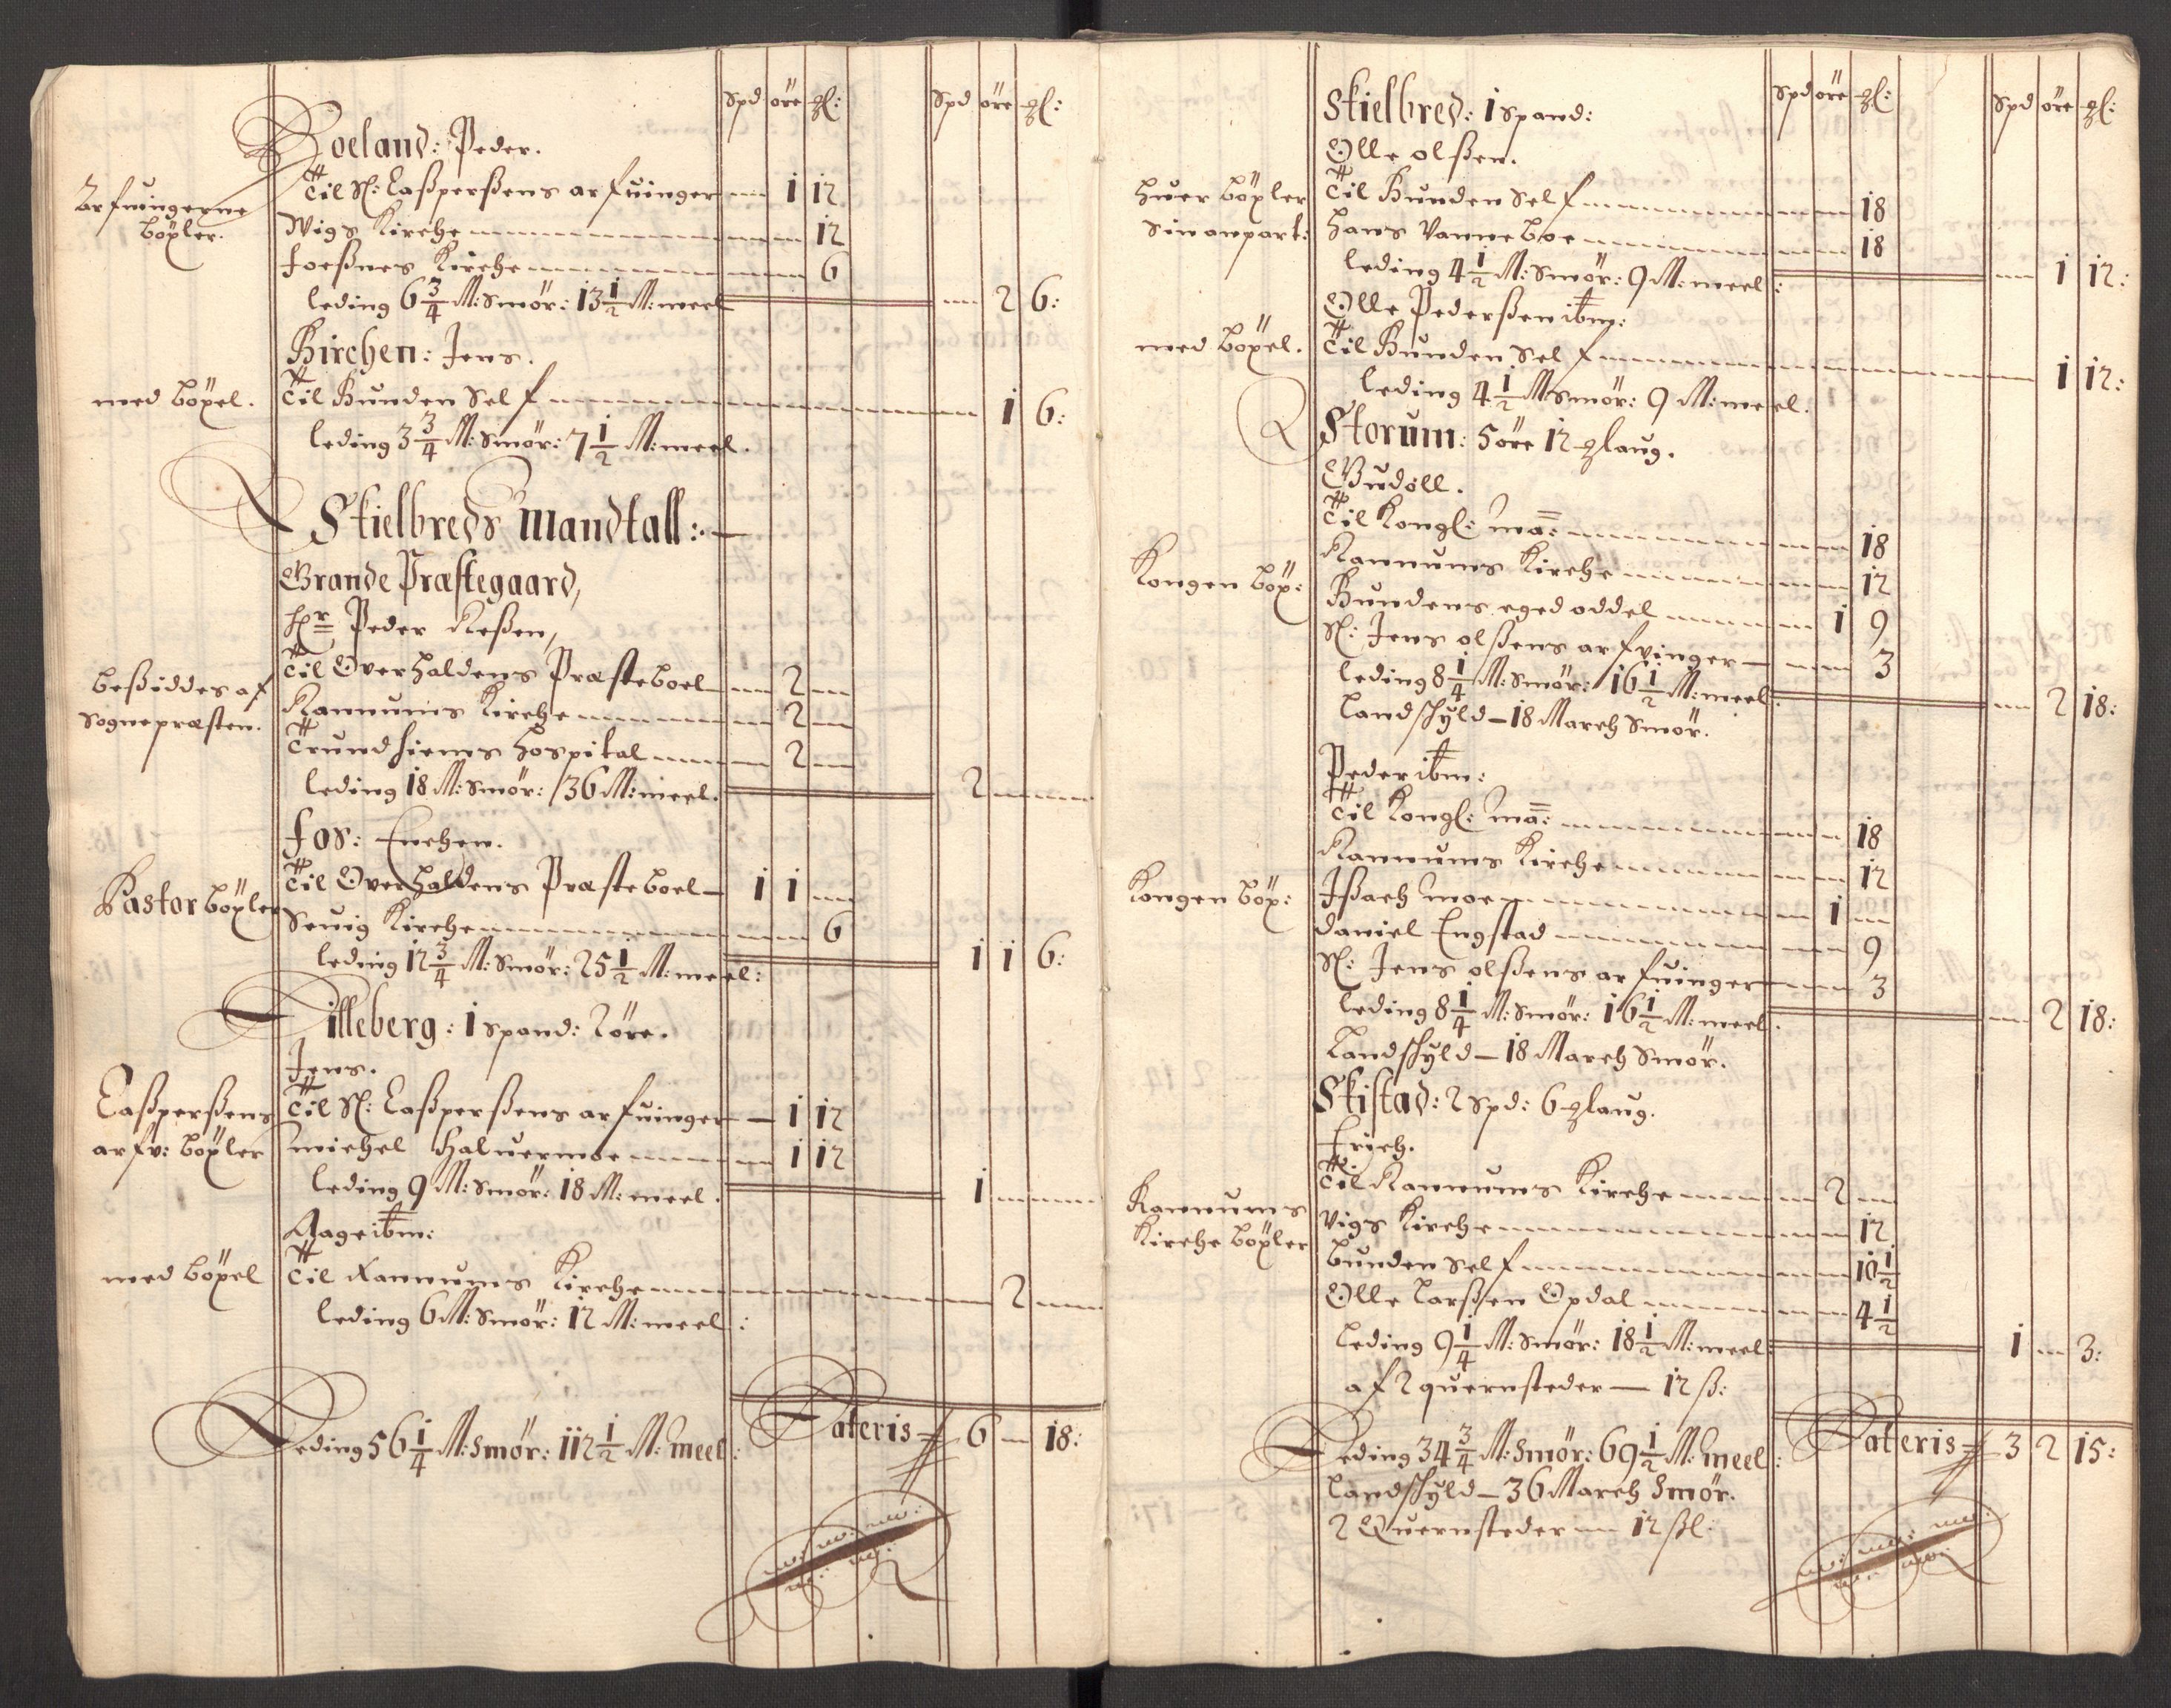 Spd öre gl: Spd öre gl:
Boeland: Peder.
Arfuingerne
böxler.
Til Sl: Casperßens arfuinger 1 12
Wigs Kirche 12
Foeßnes Kirche 6
leding 6 3/4 M: Smör: 13 1/2 M: meel 2 6:
Kirchen: Jens.
med böxel. Til Bunden Self 1 6:
leding 3 3/4 M: Smör: 7 1/2 M: meel.
Skielbreds Mandtall:
Grande Præstegaard,
Hr Peder
beßiddes af
Sognepræsten.
Til Overhaldens Præsteboel 2
Rannums Kirche 2
Trundhiems Hospital 2
leding 18 M: Smör: 36 M: meel. 2
Fos: Enchen.
Pastor böxler Til Overhaldens Præsteboel 1 1
Seuig Kirche 6
leding 12 3/4 M: Smör: 25 1/2 M: meel: 1 1 6:
Lilleberg: 1 Spand: 2 öre.
Jens.
Caßperßens
arfv: böxler
Til Sl: Caßperßens arfuinger 1 12
michel Haluermoe 1 12
leding 9 M: Smör: 18 M: meel. 1
Aage ibm:
med böxel Til Rannums Kirche 2
leding 6 M: Smör: 12 M: meel:
Leding 56 1/4 M: Smör: 112 1/2 M: meel: Lateris 6 18:
Spd öre gl: Spd öre gl:
Skielbred: 1 Spand:
Olle olßen.
huer böxler
Sin anpart:
Til Bunden Self 18
Hans Vanneboe 18
leding 4 1/2 M: Smör: 9 M: meel: 1 12:
Olle Pederßen ibm:
med böxel. Til Bunden Self 1 12:
leding 4 1/2 M Smör: 9 M: meel.
Storum: 5 öre 12 glaug.
Gudøll.
Til Kongl: Ma: 18
Kongen böx: Rannums Kirche 12
Bundens eged oddel 1 9
Sl: Jens olßens arfvinger 3
leding 8 1/4 M: Smör: 16 1/2 M: meel: 2 18:
Landschyld 18 March Smör.
Peder ibm:
Til Kongl: Ma: 18
Rannums Kirche 12
Kongen böx: Ißach moe 1
Daniel Engstad 9
Sl: Jens olßens arfuinger 3
leding 8 1/4 M: Smör: 16 1/2 M: meel. 2 18:
Landschyld 18 March Smör.
Skistad: 2 Spd: 6 glaug.
Erich.
Rannums
Kirche böxler
Til Rannums Kirche 2
Vigs Kirche 12
Bunden Self 10 1/2
Olle Larßen Opdal 4 1/2
leding 9 1/4 M: Smör: 18 1/2 M: meel: 1 3:
af 2 quernsteder 12 ß:
Leding 34 3/4 M: Smör: 69 1/2 M: meel: Lateris 3 2 15:
Landschyld 36 March Smör.
2 Quernsteder 12 ßl: